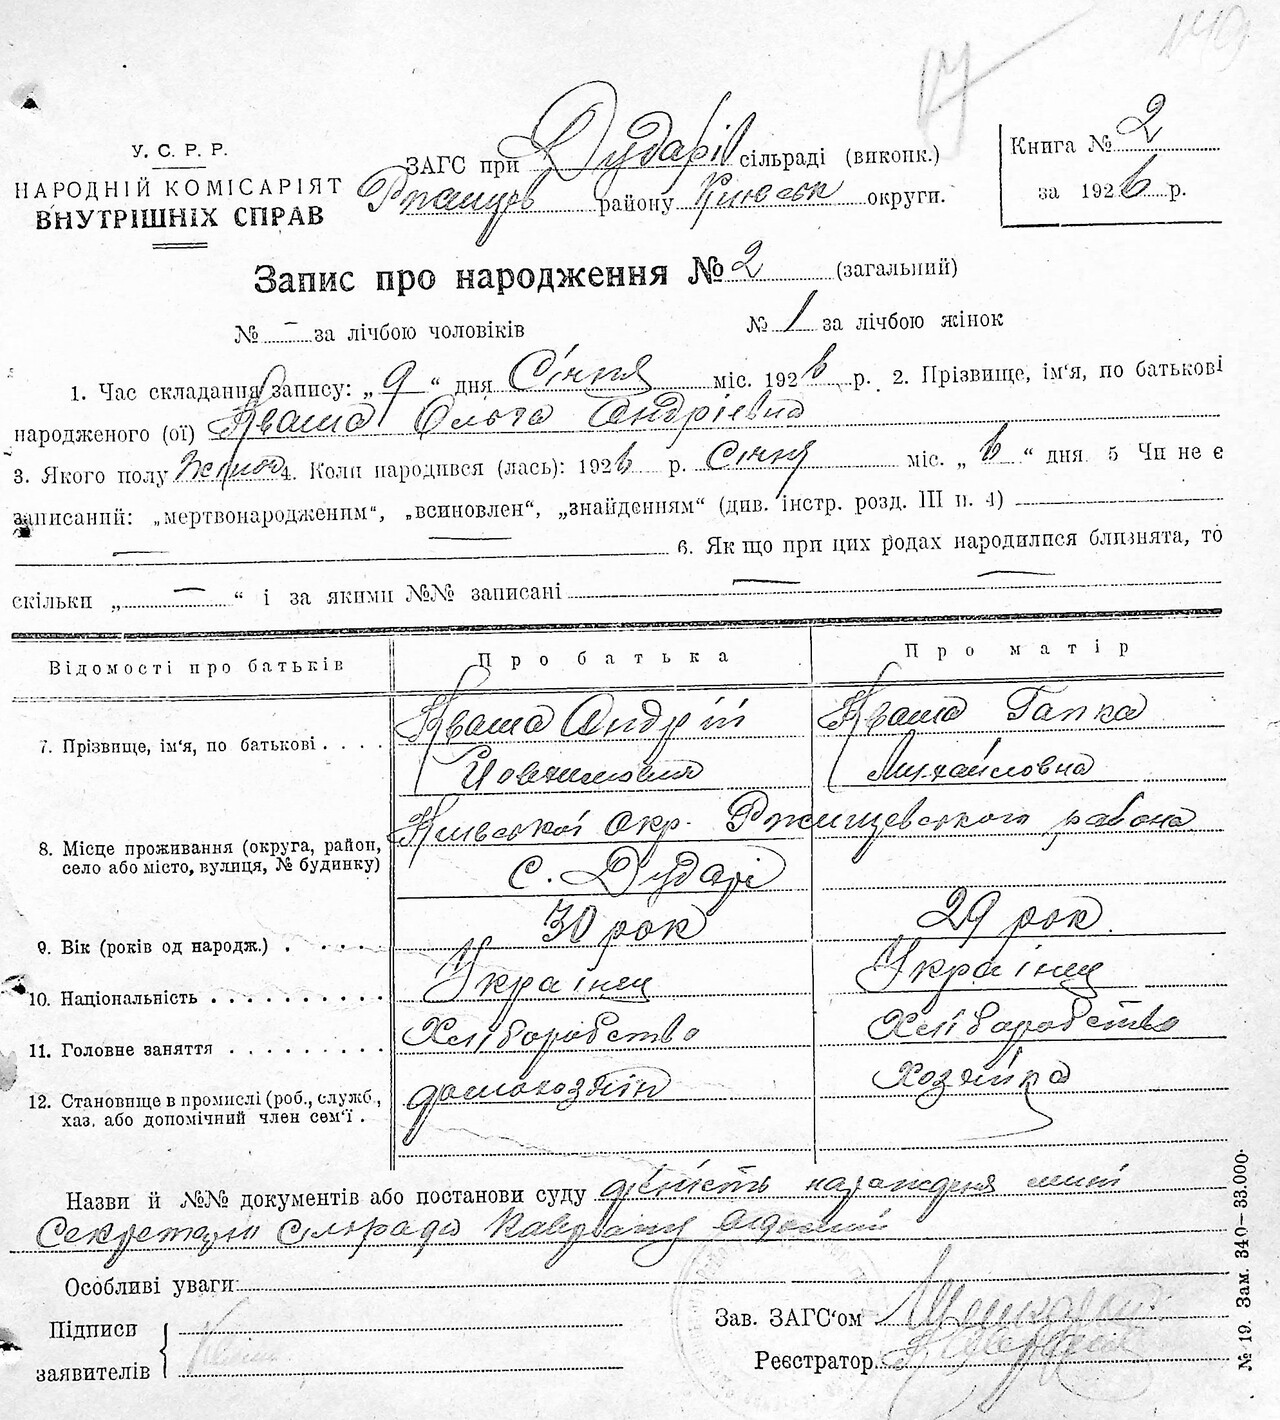 17
149
У. С. Р. Р.
НАРОДНІЙ КОМІСАРІЯТ
ВНУТРІШНІХ СПРАВ
ЗАГС при Дударів сільраді (виконк.)
Ржищев району Киювськ округи.
Книга № 2
за 1926 р.
Запис про народження № 2 (загальний)
№ - за лічбою чоловіків № 1 за лічбою жінок
1. Час складання запису: „ 9 “ дня Січня міс. 1926 р. 2. Прізвище, ім'я, по батькові
народженого (ої) Кваша Ольга Андріевна
3. Якого полу Жіноч 4. Коли народився (лась): 1926 р. Січня міс. „ 6 “ дня. 5 Чи не є
записаний: „мертвонародженим“, „всиновлен“, „знайденням“ (див. інстр. розд. III п. 4)
6. Як що при цих родах народилися близнята, то
скільки „ — “ і за якими №№ записані —
Відомості про батьків Про батька Про матір
7. Прізвище, ім'я, по батькові . . . . Кваша Андрій Кваша Гапка
Михайловна
8. Місце проживання (округа, район, село або місто, вулиця, № будинку) Київської окр. Ржищевського района
с. Дударі
9. Вік (років од народж.) . . . . . 30 рок 29 рок.
10. Національність . . . . . . . . . . Українец Українец
11. Головне заняття . . . . . . . . . Хліборобство Хліборобство
12. Становище в промислі (роб., служб., хаз. або допомічний член сем'ї . домохозяїн Хозяйка
Назви й №№ документів або постанови суду дісність нарождення
Секретарю Сільради
Особливі уваги:
Підписи
заявителів
Зав. ЗАГС'ом
Реєстратор
№ 19. Зам. 340—33.000.